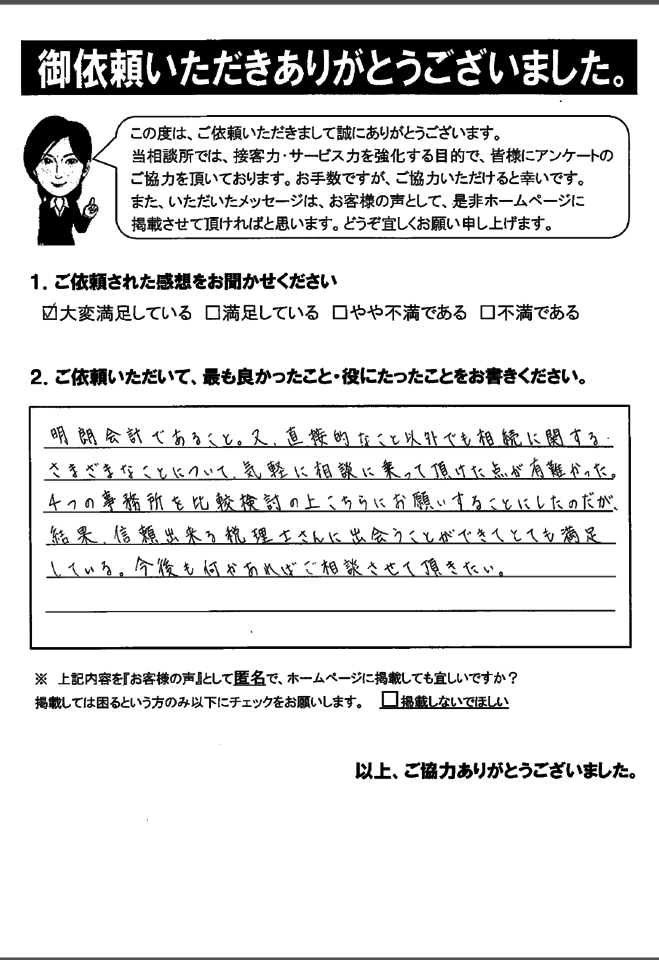 御依頼いただきありがとうございました。
この度は、ご依頼いただきまして誠にありがとうございます。
当相談所では、接客力・サービス力を強化する目的で、皆様にアンケートの
ご協力を頂いております。お手数ですが、ご協力いただけると幸いです。
また、いただいたメッセージは、お客様の声として、是非ホームページに
掲載させて頂ければと思います。どうぞ宜しくお願い申し上げます。
1. ご依頼された感想をお聞かせください
☑大変満足している □満足している □やや不満である □不満である
2. ご依頼いただいて、最も良かったこと・役にたったことをお書きください。
明朗会計であること。又、直接的なこと以外でも相続に関する
さまざまなことについて、気軽に相談に乗って頂けた点が有難かった。
4つの事務所を比較検討の上こちらにお願いすることにしたのだが、
結果、信頼出来る税理士さんに出会うことができてとても満足
している。今後も何かあればご相談させて頂きたい。
※ 上記内容を『お客様の声』として匿名で、ホームページに掲載しても宜しいですか？
掲載しては困るという方のみ以下にチェックをお願いします。 □掲載しないでほしい
以上、ご協力ありがとうございました。